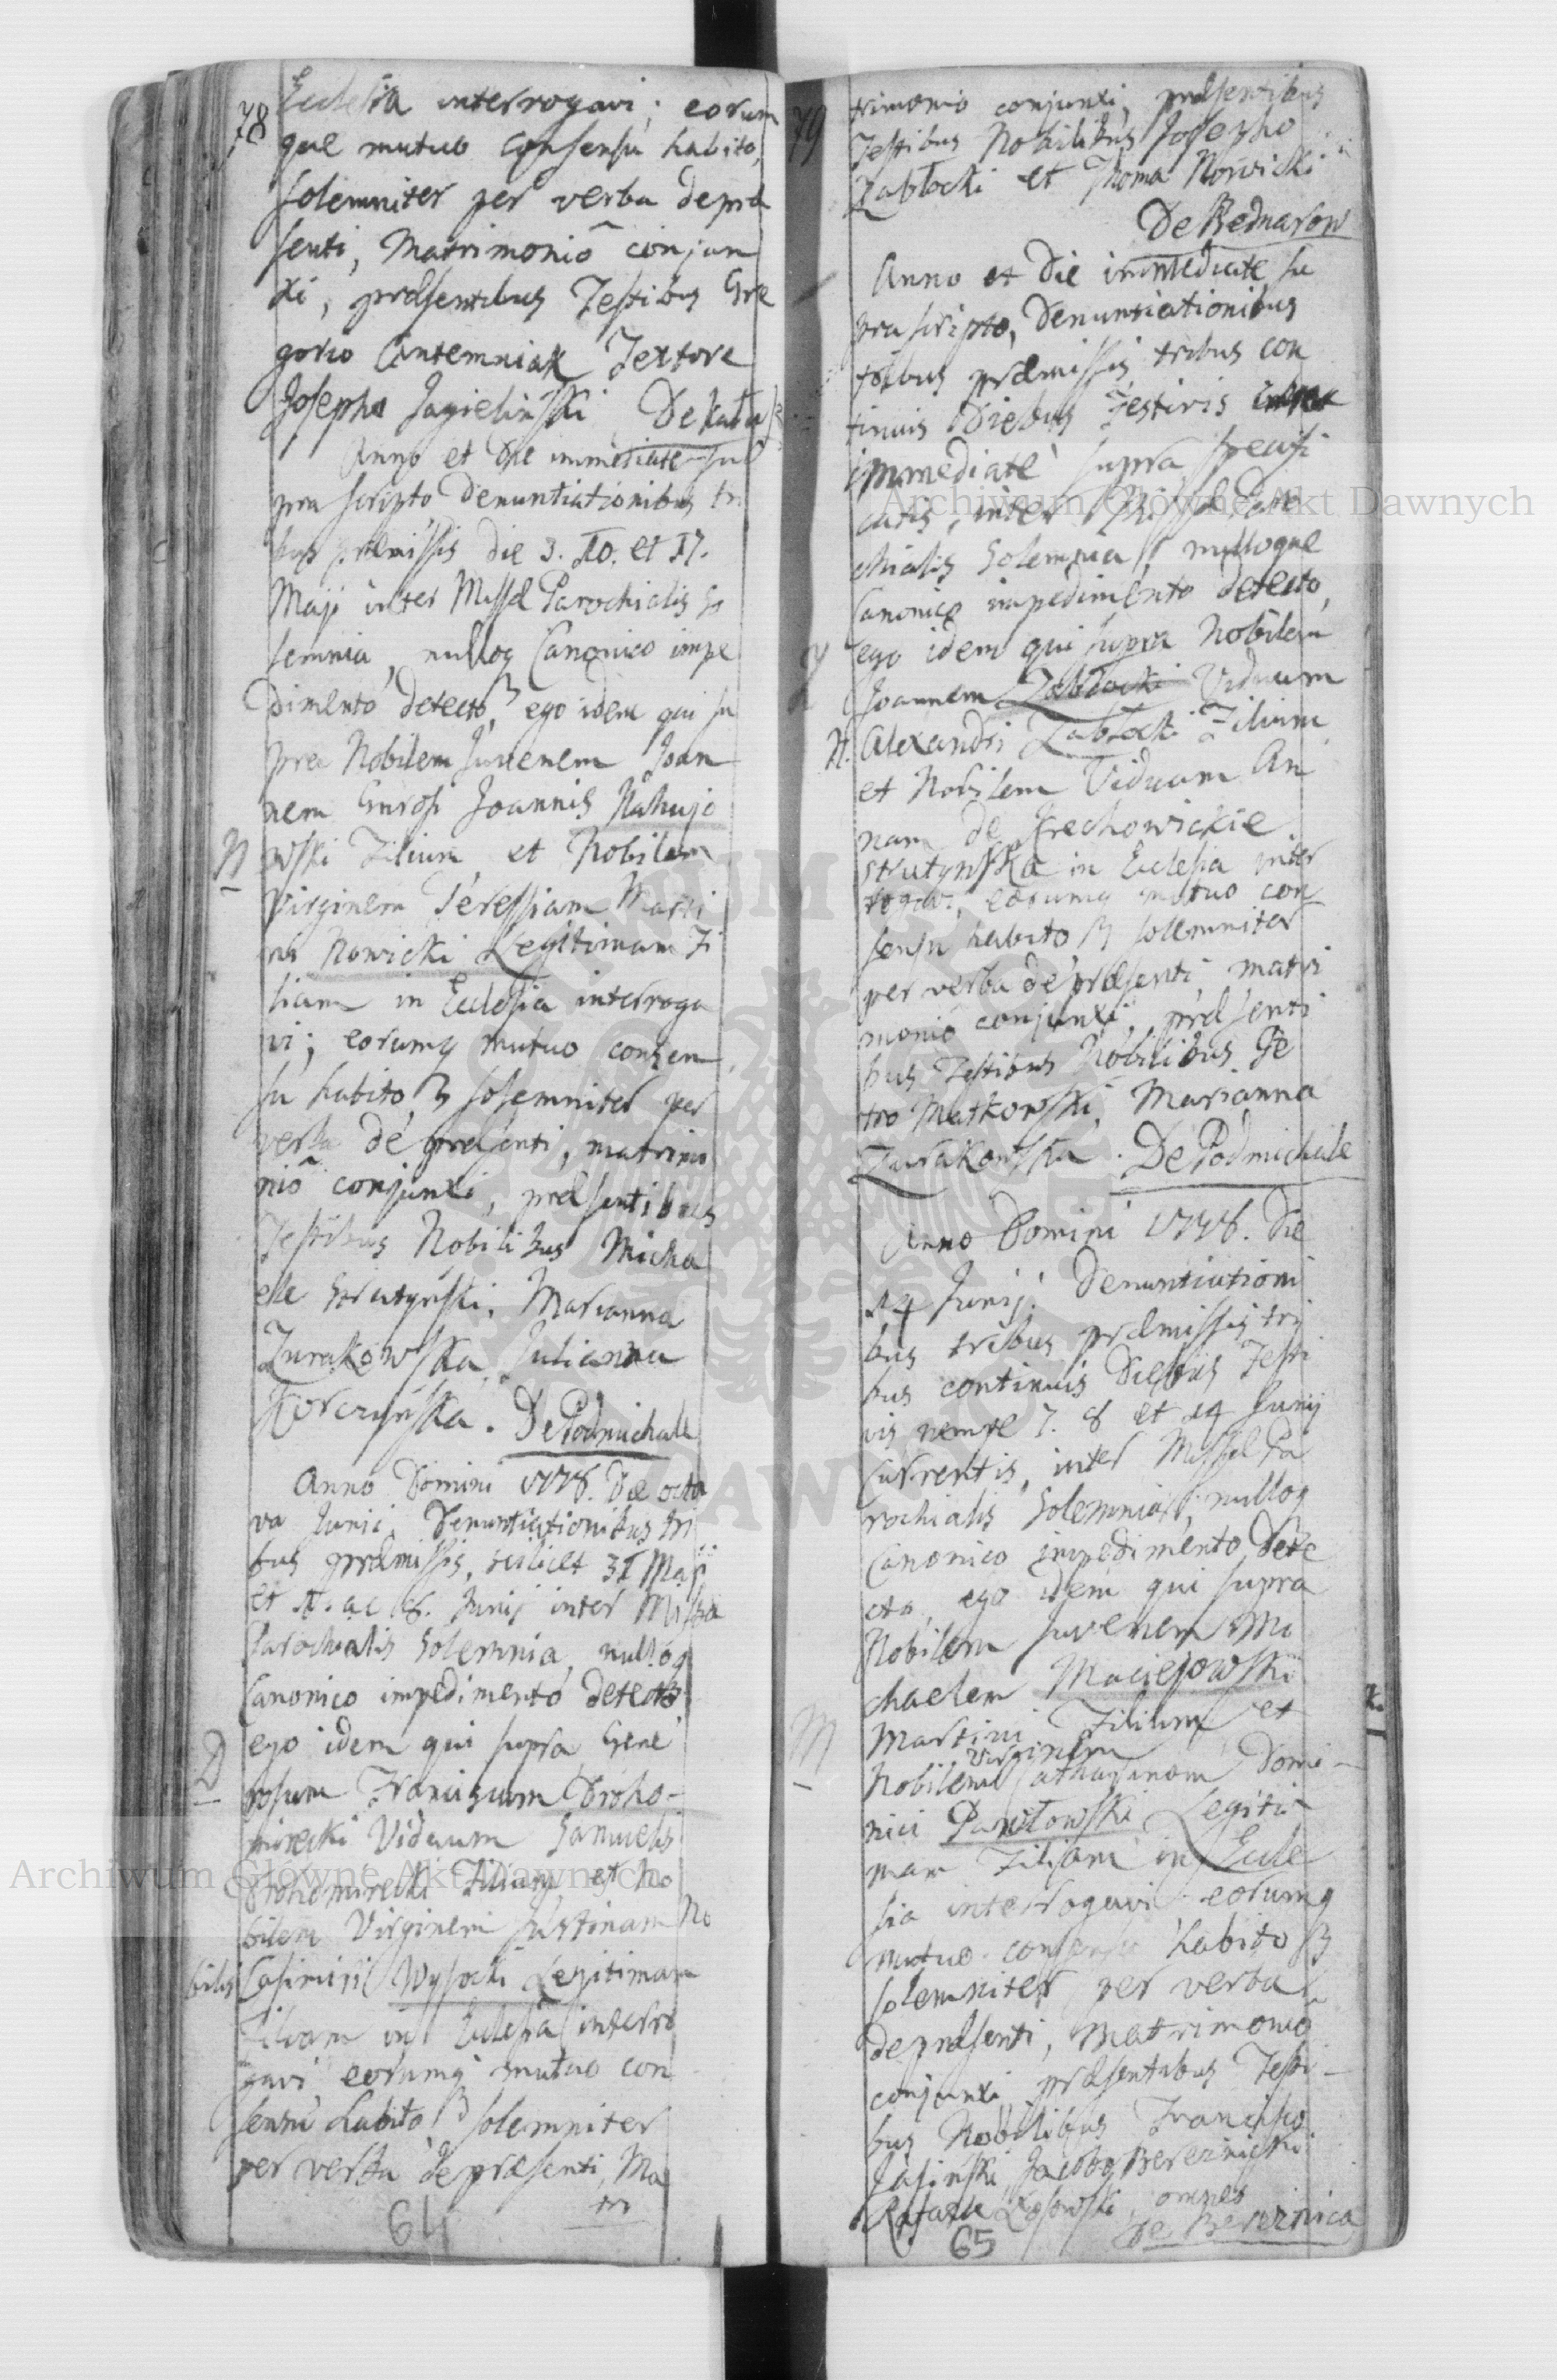 78
Ecclesia interrogavi; eorum
que mutuo consensu habito,
solemniter per verba de præ
senti, Matrimonio conjun
xi, præsentibus Testibus Gre
gorio Antemniak Textore
Josepho Jagielinski De Kału
Anno et Die immediate su
pra scripto Denuntiationibus tri
bus præmissis die 3. 10. et 17.
Maji inter Missæ Parochialis So
lemnia, nulloq Canonico impe
dimento detecto, ego idem qui su
pra Nobilem Juvenem Joan
nem Generosi Joannis Nahujo
N wski Filium et Nobilem
Virginem Teressiam Marti
ni Nowicki Legitimam Fi
liam in Ecclesia interroga
vi; eorumq mutuo consen
su habito solemniter per
verba de præsenti, matrimo
nio conjunxi, præsentibus
Testibus Nobilibus Micha
ele Strutyński, Marianna
Zurakowska, Julianna
Korczyńska. De Podmichale
Anno Domini 1778. Die octa
va Junii Denuntiationibus tri
bus præmissis, scilicet 31 Maji
et 7. ac 8. Junij inter Missæ
Parochialis Solemnia, nulloq
Canonico impedimento detecto
ego idem qui supra Gene
D rosum Franciscum Droho-
mirecki Viduum Samuelis
Drohomirecki Filium et No
bilem Virginem Justinam No
bilis Casimiri Wysocki Legitimam
Filiam in Ecclesia interro
gavi, eorumq mutuo con
sensu habito solemniter
per verba de præsenti, Ma
tri
64
79
trimonio conjunxi, præsentibus
Testibus Nobilibus Josepho
Zabłocki et Thoma Nowicki
De Bednarow
Anno et Die immediate su
pra scripto, Denuntiationibus
tribus præmissis tribus con
tinuis Diebus Festivis
immediate supra specifi
catis, inter Missæ Paro
chialis Solemnia, nulloque
Canonico impedimento detecto,
ego idem qui supra Nobilem
Joannem Zabłocki Viduum
N. Alexandri Zabłocki Filium
et Nobilem Viduam An
nam de Hrechowickie
Strutynska in Ecclesia inter
rogavi, eorumq mutuo con
sensu habito solemniter
per verba de præsenti, matri
monio conjunxi, præsenti
bus Testibus Nobilibus Pe
tro Matkowski, Marianna
Zurakowska. De Podmichale
Anno Domini 1778. Die
14 Junij. Denuntiationi
bus tribus præmissis tri
bus continuis Diebus Festi
vis nempe 7. 8 et 14 Junij
Currentis, inter Missæ Pa
rochialis Solemnia, nulloq
Canonico impedimento dete
cto, ego idem qui supra
Nobilem Juvenem Mi
chaelem Maciejowski
M Martini Filium et
Virginem
Nobilem Catharinam Domi-
nici Pawłowski Legiti-
mam Filiam in Eccle
sia interrogavi eorumq
mutuo consensu habito
solemniter per verba
de præsenti, Matrimonio
conjunxi, præsentibus Testi-
bus Nobilibus Francisco
Jasinski, Jacobo Bereznicki
Rafaele Łosowski, omnes
de Bereznica
65
Archiwum Główne Akt Dawnych
Archiwum Główne Akt Dawnych